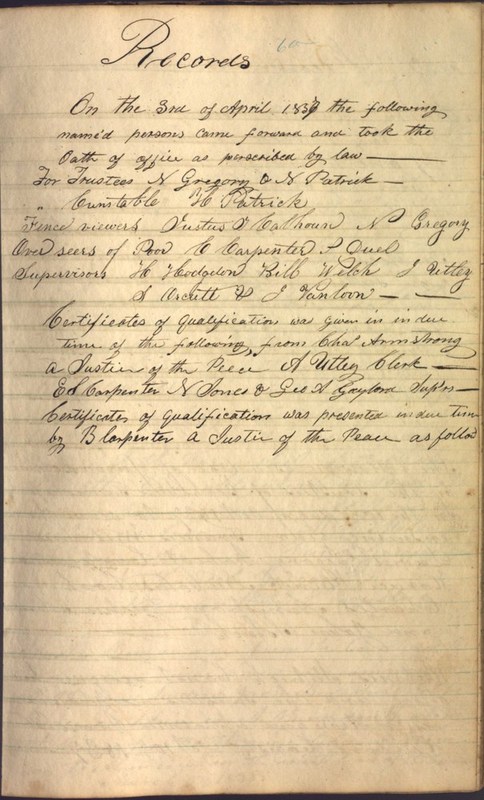 Records
On the 3rd of April 1839 the following
named persons came forward and took the
Oath of office as perscribed by law
For Trustees N Gregory & N Patrick
" Cunstable H Patrick
Fence viewers Justus J Calhoun N Gregory
Over seers of Poor C Carpenter P Duel
Supervisors H Hodgdon Bill Welch J Utley
S Orcutt & J Vanloon
Certificates of Qualification was given in in due
time of the following, from Chal Armstrong
a Justice of the Peece A Utley Clerk
E S Carpenter N Jones & Geo A Gaylord Sup'rs
Certificates of qualification was presented in due time
by B Carpenter a Justic of the Peace as follows